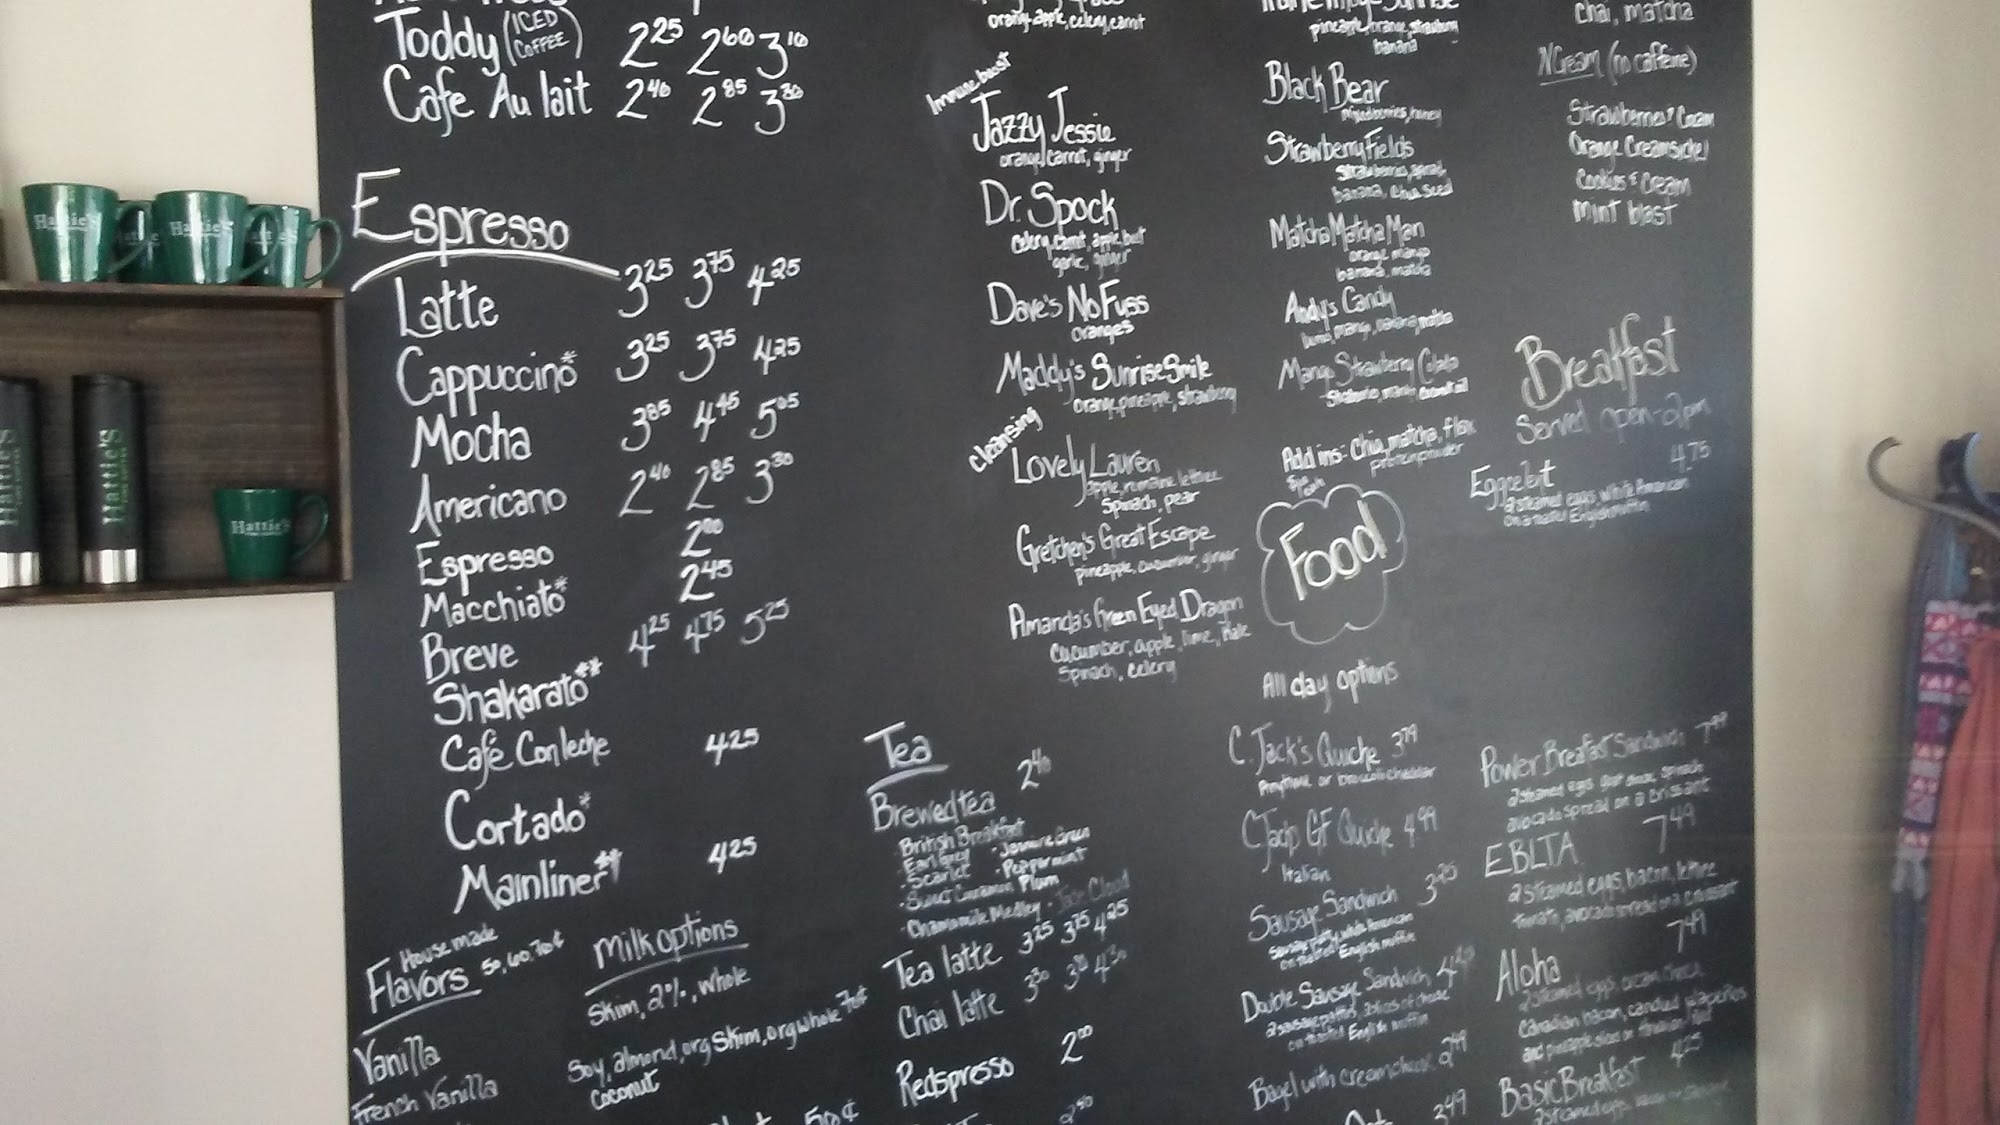 Toddy (ICED COFFEE) 2.25 2.60 3.10
Cafe Au lait 2.40 2.85 3.30
Espresso
Latte 3.25 3.75 4.25
Cappuccino* 3.25 3.75 4.25
Mocha 3.85 4.45 5.05
Americano 2.40 2.85 3.30
Espresso 2.00
Macchiato* 2.45
Breve 4.25 4.75 5.25
Shakarato**
Café Con leche 4.25
Cortado*
Mainliner** 4.25
House made
Flavors 50, 60, 70¢
Vanilla
French Vanilla
Milk options
Skim, 2%, whole
Soy, almond, org skim, org whole 70¢
coconut
50¢
orange, apple, celery, carrot
Immune boost
Jazzy Jessie
orange, carrot, ginger
Dr. Spock
celery, carrot, apple, beet
garlic, ginger
Dave's No Fuss
oranges
Maddy's Sunrise Smile
orange, pineapple, strawberry
Cleansing
Lovely Lauren
apple, romaine lettuce
spinach, pear
Gretchen's Great Escape
pineapple, cucumber, ginger
Amanda's Green Eyed Dragon
cucumber, apple, lime, kale
spinach, celery
Tea
Brewed tea 2.40
British Breakfast
Earl Grey · Jasmine Green
· Scarlet · Peppermint
· Sweet Cinnamon Plum
· Chamomile Medley · Jade Cloud
Tea latte 3.25 3.75 4.25
Chai latte 3.30 4.30
Redspresso 2.00
pineapple, orange, strawberry
banana
Black Bear
mixed berries, honey
Strawberry Fields
strawberries, spinach,
banana, chia seed
Matcha Matcha Man
orange, mango
banana, matcha
Andy's Candy
mango, banana, matcha
Mango Strawberry Colada
Add ins: chia, matcha, flax
protein powder
Food
All day options
C. Jack's Quiche 3.79
or broccoli cheddar
C Jack's GF Quiche 4.99
Italian
Sausage Sandwich 3.25
sausage patty, white American
on toasted English muffin
Double Sausage Sandwich
2 sausage patties, 2 slices of cheese
on toasted English muffin
Bagel with cream cheese 2.49
3.49
chai, matcha
N'Cream (no caffeine)
Strawberries & Cream
Orange Creamsickel
Cookies & Cream
mint blast
Breakfast
Served open-2pm
Eggcelent 4.75
2 steamed eggs, white American
on a toasted English muffin
Power Breakfast Sandwich 7.49
2 steamed eggs, goat cheese, spinach
avocado spread on a croissant
EBLTA 7.49
2 steamed eggs, bacon, lettuce
tomato, avocado spread on a croissant
Aloha 7.49
2 steamed eggs, cream cheese
Canadian bacon, candied jalapeños
and pineapple slices on
Basic Breakfast 4.25
2 steamed eggs, bacon or sausage
Hattie's
Hattie's
Hattie's
Hattie's
Hattie's